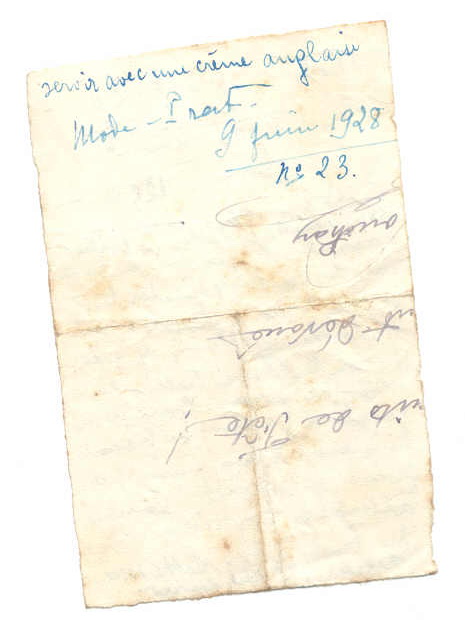 servir avec une crème anglaise
Mode - Prat.
9 Juin 1928
No 23.
de Fête !